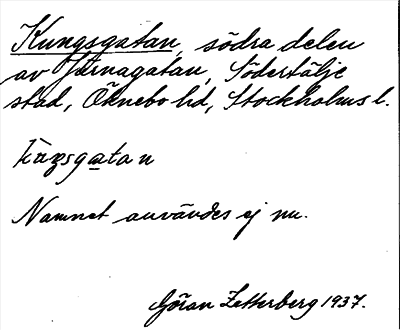 Kungsgatan, södra delen
av Järnagatan, Södertälje
stad, Öknebo hd, Stockholms l.
Namnet användes ej nu.
Göran Zetterberg 1937.